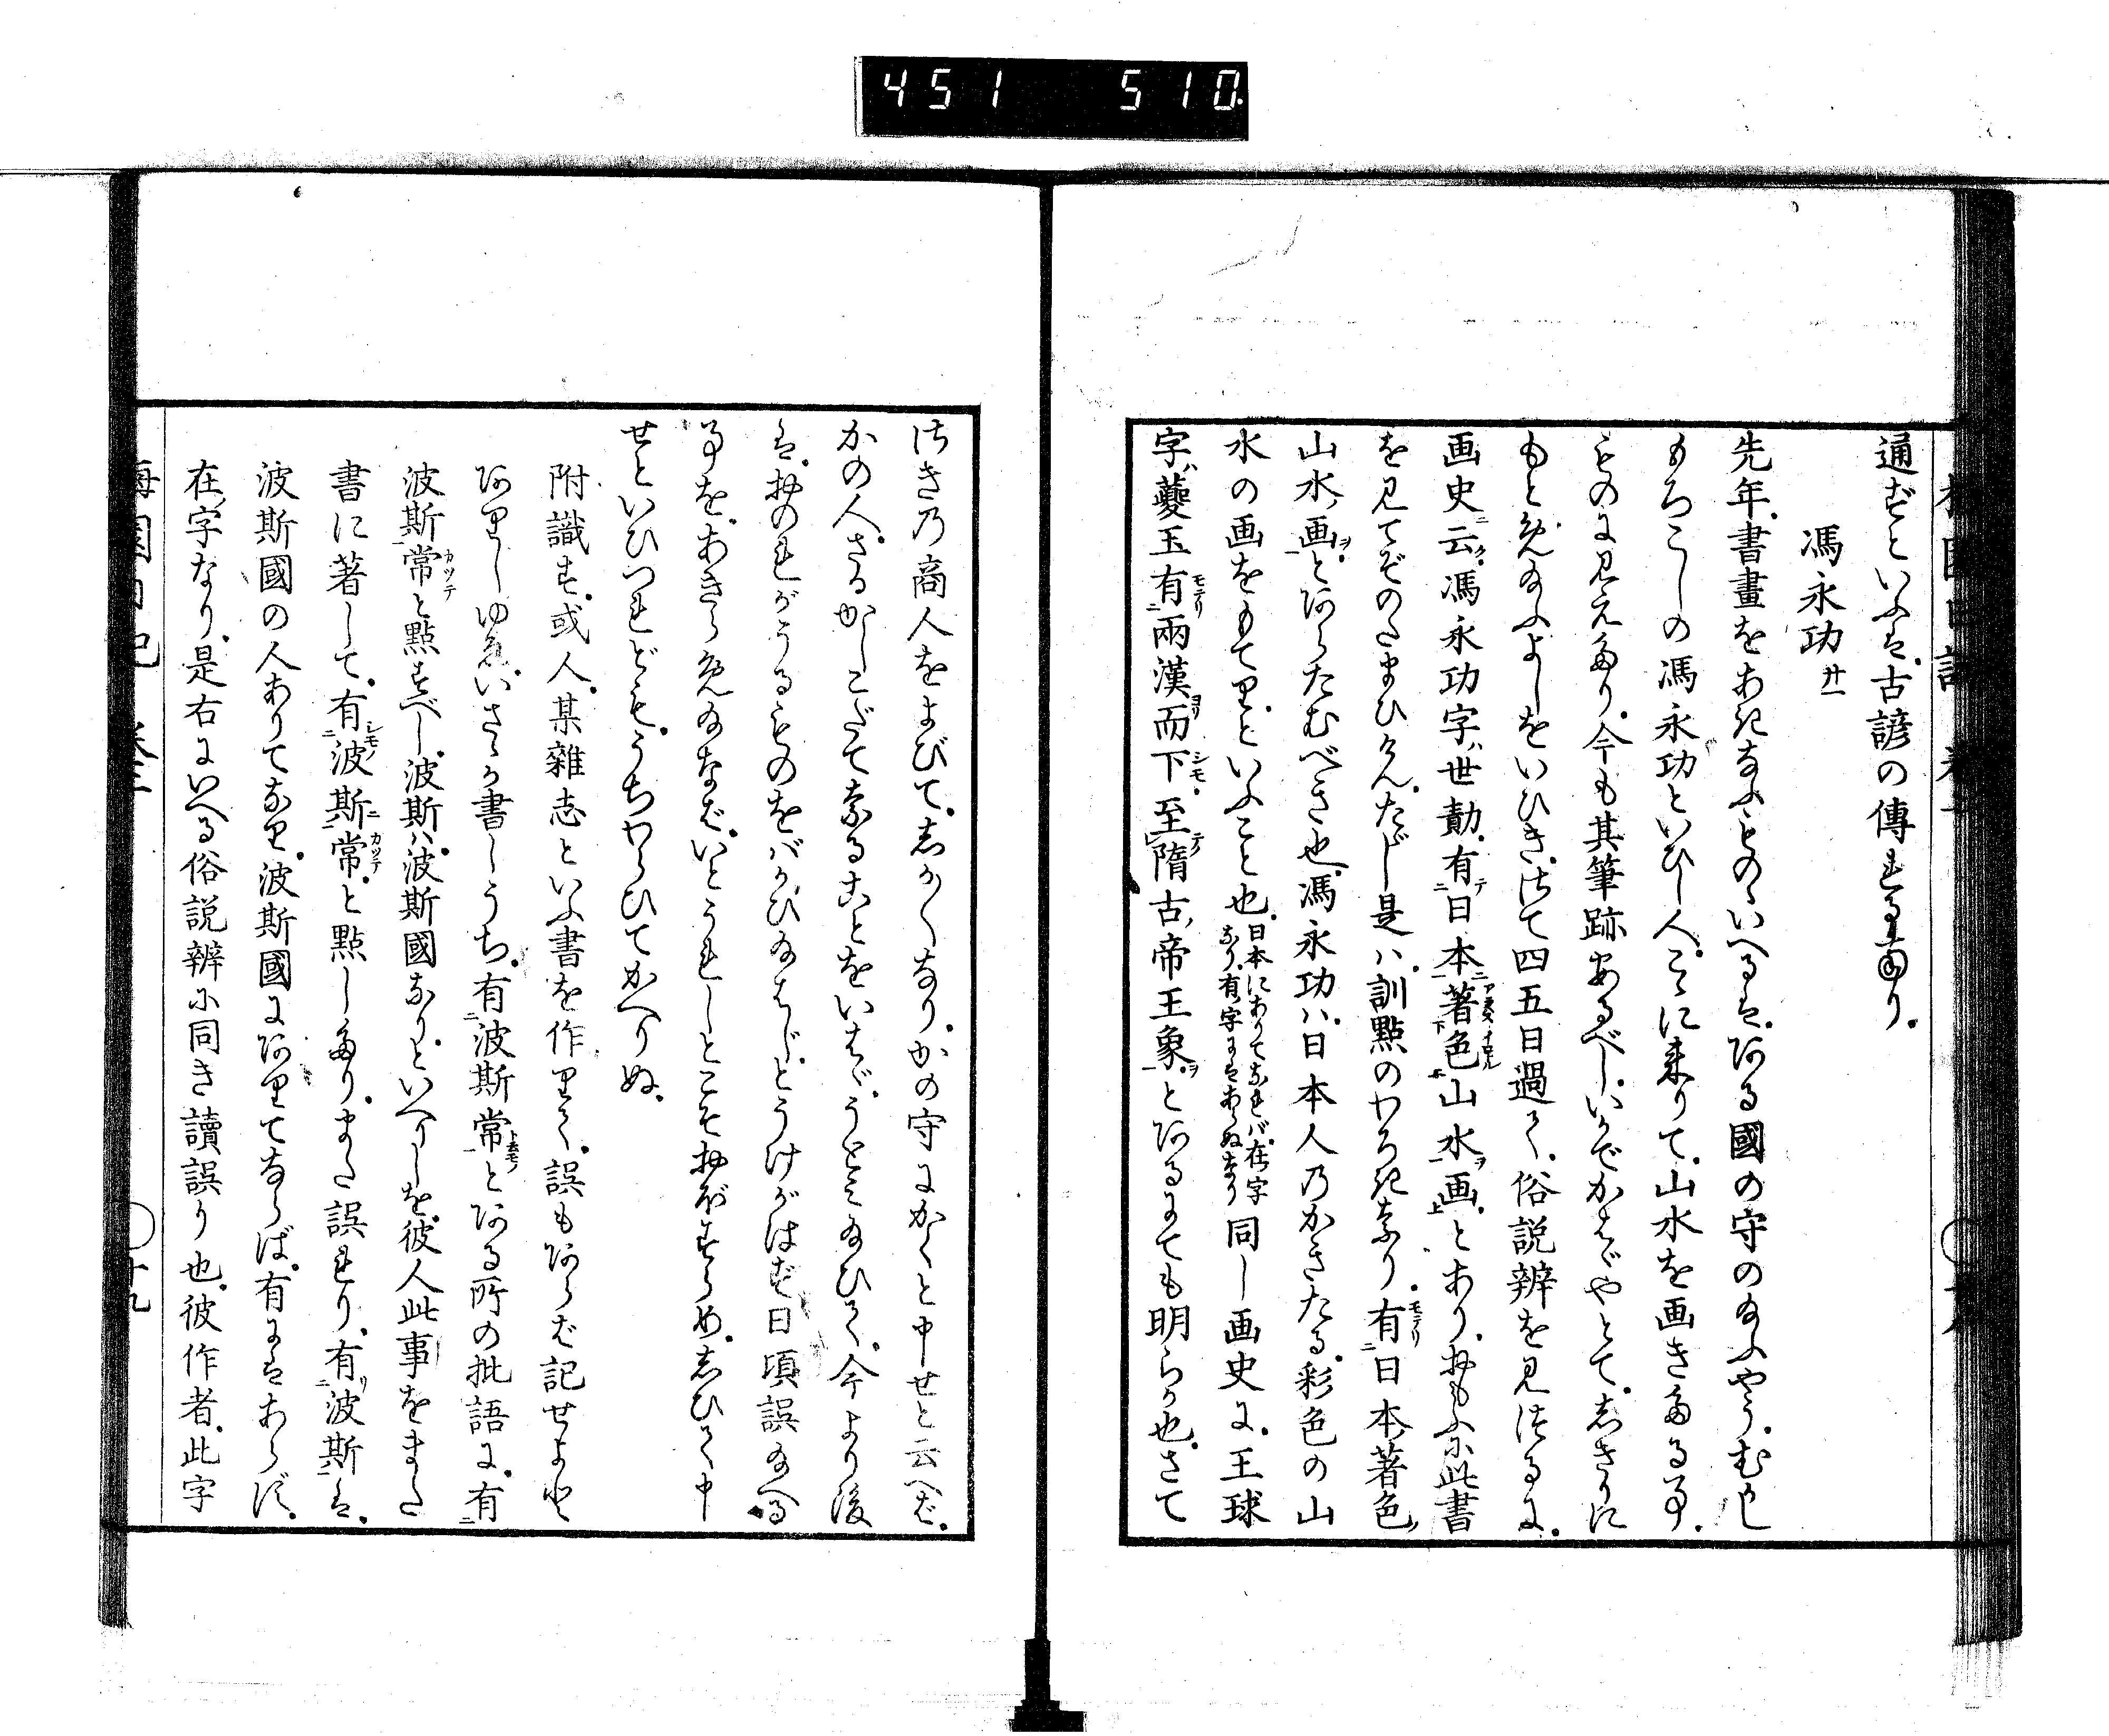 451 510
通ぜといふは。古諺の傳はる有り。
馮永功 廿一
先年。書畫をあきなふものゝいへるは。ある國の守の給ふやう。むかし
もろこしの馮永功といひし人。こゝに来りて。山水を画きたる事。
ものに見えたり。今も其筆跡あるべし。いかでかはゞやとて。しきりに
もとめ給ふよしをいひき。さて四五日過て。俗説辨を見けるに。
画史ニ云ク。馮永功字ハ世勣。有テ日本ニ著色山水ヲ画。とあり。おもふに此書
を見てぞのたまひけん。たゞし是ハ。訓點のわろきなり。有モテリ日本著色ノ
山水ノ画ヲ。とあらたむべき也。馮永功ハ。日本人乃かきたる。彩色の山
水の画をもてり。といふこと也。日本にありてなれバ。在字なり。有字にはあらぬなり 同し画史に。王球
字ハ夔玉有モテリ兩漢ヨリ而下シモ。至テノ隋古ノ帝王象ヲ。とあるにても明らか也。さて
さき乃商人をよびて。しか〱なり。かの守にかくと申せと云へば。
かの人。さるかしこだて奈ることをいはゞ。うとみ給ひて。今より後
は。おのれがうるものをバかひ給はじ。とうけがはず日頃誤給へる
事を。あきらめ給なば。いとうれしとこそおぼすらめ。しひて申
せといひつれども。うちわらひてかへりぬ。
附識す。或人。某雜志といふ書を作りて。誤もあらば記せよと
ありしゆゑ。いさゝか書しうち。有波斯常ト云モノとある所の批語に。有
波斯常カツテと點すべし。波斯ハ。波斯國なり。といへりしを。彼人此事をまた
書に著して。有シモノ波斯ニ常カツテ。と點したり。また誤れり。有リ波斯は。
波斯國の人ありてなり。波斯國にありてならば。有にはあらず。
在字なり。是右にいへる俗説辨に同き讀誤り也。彼作者。此字